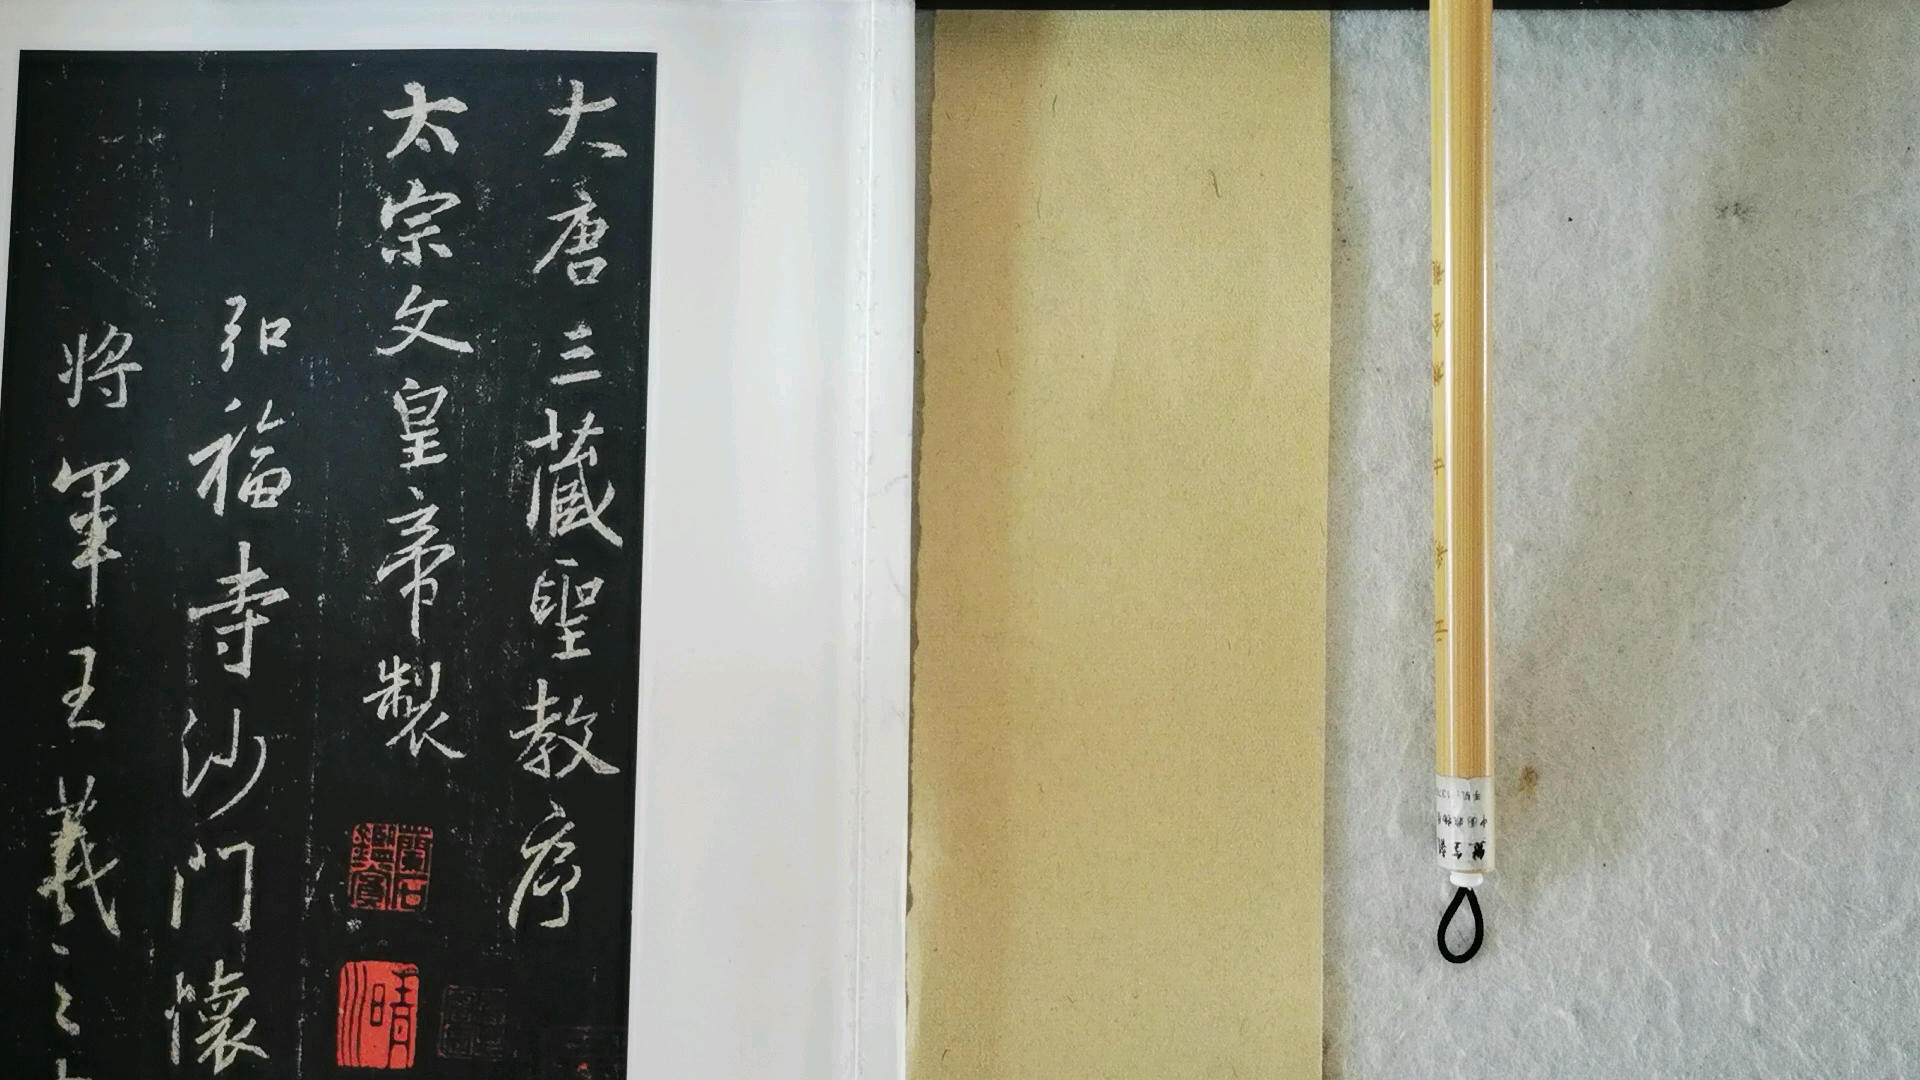 大唐三藏聖教序
太宗文皇帝製
弘福寺沙門懷
將軍王羲之